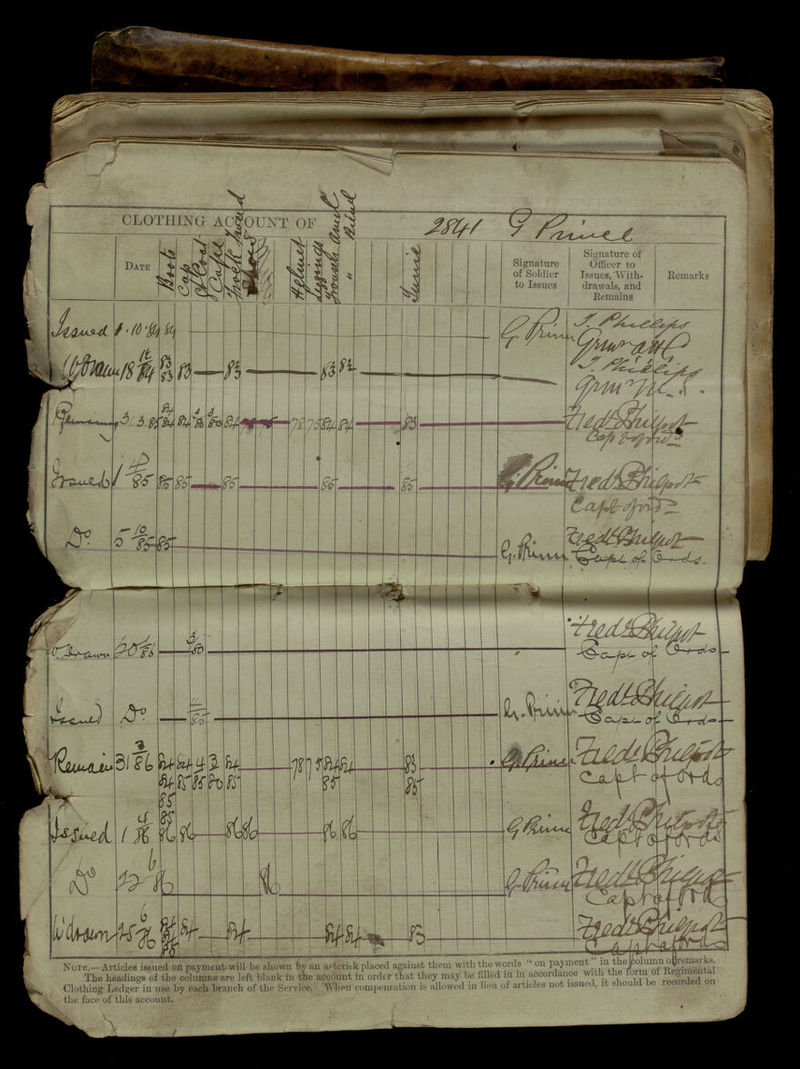 CLOTHING ACCOUNT OF 2841 G Prince
DATE Boots Cap Helmet Leggings Tunic
Signature of Soldier to Issues
Signature of Officer to Issues, With-drawals, and Remains
Remarks
Issued 1.10.84 84 T. Phillips
18 12/84 83 83 83 83 83 T. Phillips
Remaining 31.3.85 84 84 84 78 75 84 84 83 Fredk Philpot
Capt of ord
Issued 1 4/85 85 85 85 85 85 Fredk Philpot
Capt of ord
Do 5 10/85 85 G. Prince Fredk Philpot
Capt of Ords.
20 1/86 3/80 Fredk Philpot
Capt of Ords
Issued Do 11/85 G. Prince Fredk Philpot
Capt of Ords
Remain 31 3/86 84 84 4 3 84 78 75 84 84 83 G Prince Fredk Philpot
84 85 85 80 85 85 85 Capt of Ords
85
85
Issued 1 4/86 86 86 86 86 86 86 G Prince Fredk Philpot
Capt of Ords
Do 22 6/86 86 G. Prince Fredk Philpot
Capt of Ords
W'drawn 25 6/86 84 84 84 84 84 83 Fredk Philpot
84
85 Capt of Ords
NOTE.—Articles issued on payment will be shown by an asterisk placed against them with the words "on payment" in the column of remarks.
The headings of the columns are left blank in the account in order that they may be filled in in accordance with the form of Regimental
Clothing Ledger in use by each branch of the Service. When compensation is allowed in lieu of articles not issued, it should be recorded on
the face of this account.